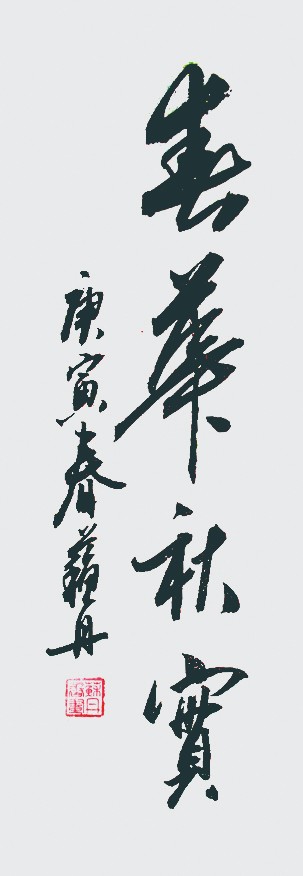 春華秋實
庚寅春蘇丹